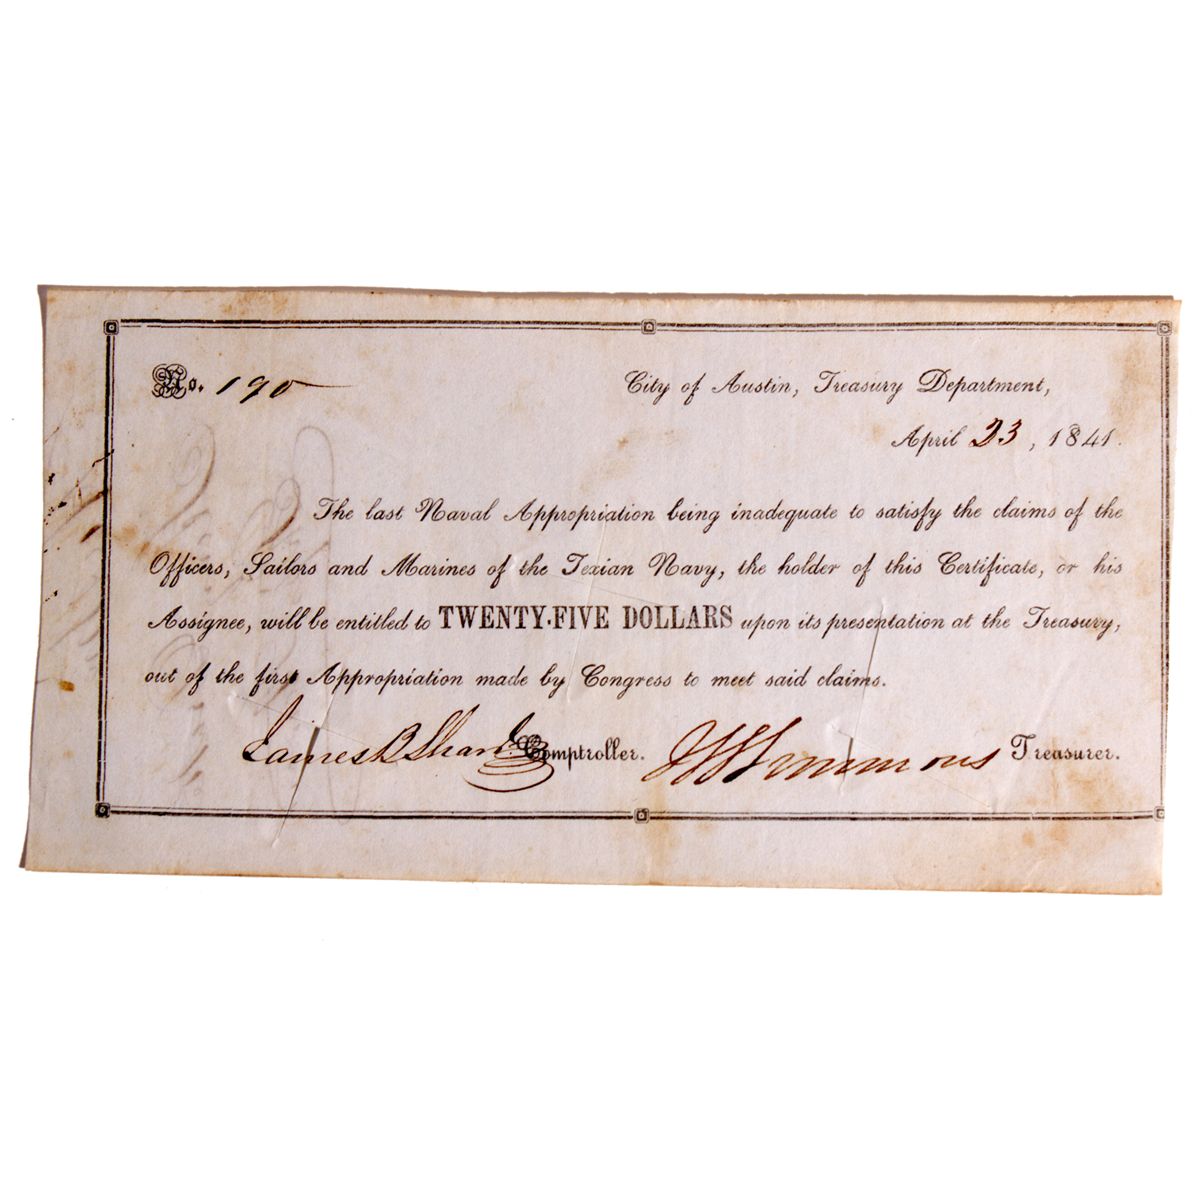 No. 190
City of Austin, Treasury Department,
April 23, 1841.
The last Naval Appropriation being inadequate to satisfy the claims of the
Officers, Sailors and Marines of the Texian Navy, the holder of this Certificate, or his
Assignee, will be entitled to TWENTY-FIVE DOLLARS upon its presentation at the Treasury,
out of the first Appropriation made by Congress to meet said claims.
James B Shaw Comptroller. Simmons Treasurer.